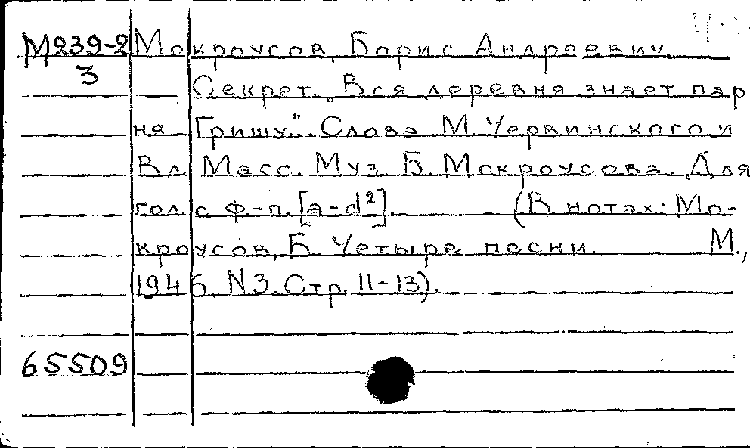 М239-2 Мокроусов, Борис Андреевич
3 Секрет. „Вся деревня знает пар
ня Гришу". Слова М. Червинского и
Вл. Масс. Муз. Б. Мокроусова. Для
гол. с ф-п. [a-d²]. (В нотах: Мо-
кроусов, Б. Четыре песни. М.,
1946. N3. Стр. 11-13).
65509